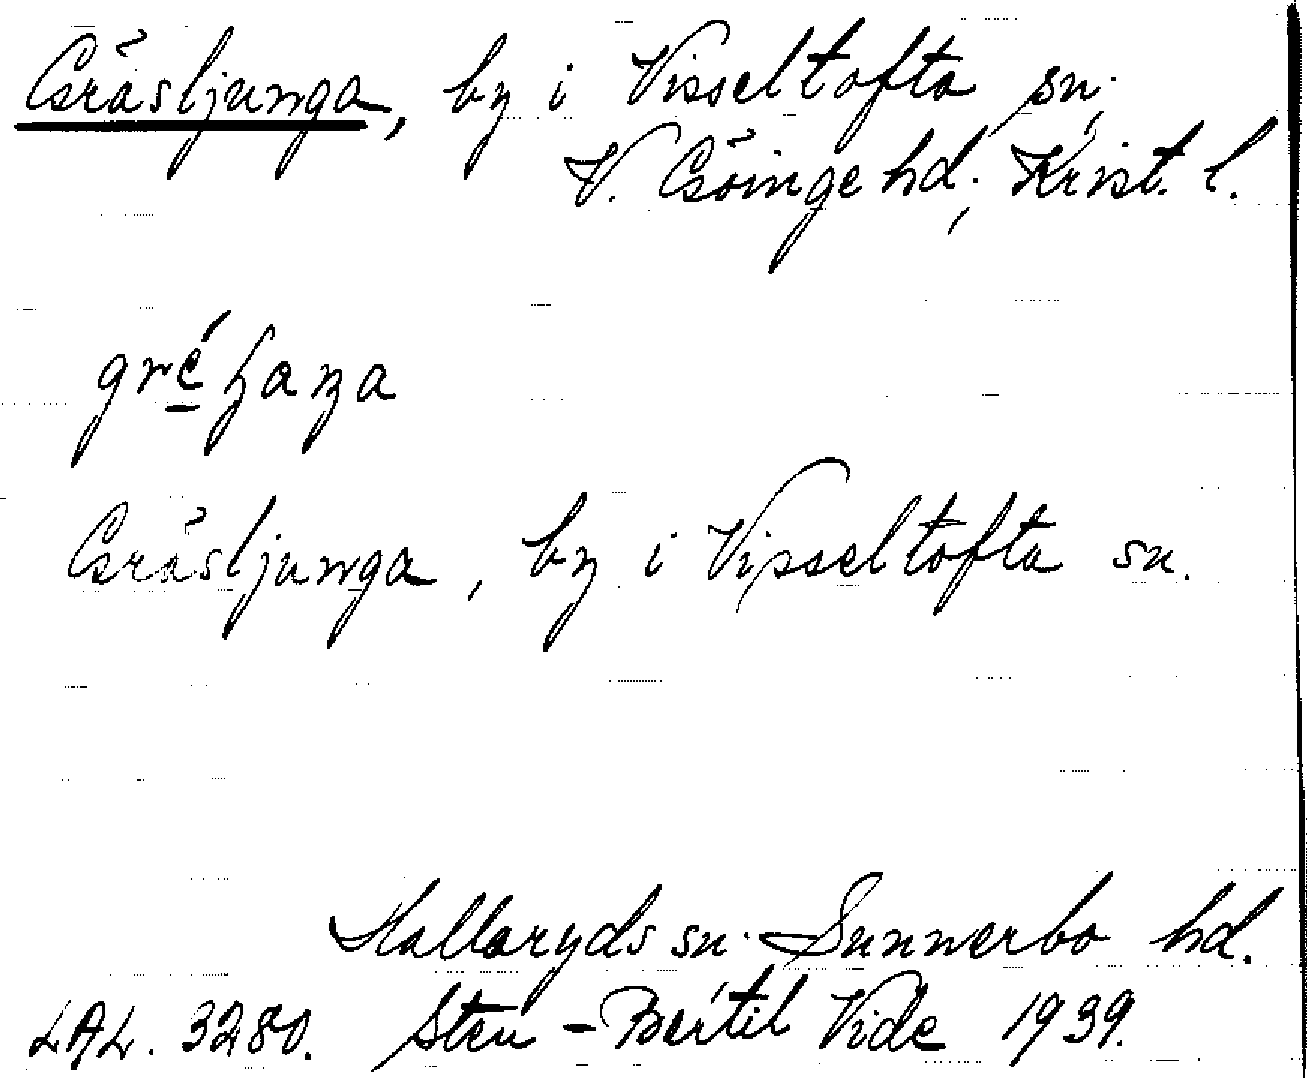 Gräsljunga, by i Visseltofta sn,
V. Göinge hd, Krist. l.
Gräsljunga, by i Visseltofta sn.
Hallaryds sn. Sunnerbo hd.
LAL. 3280. Sten-Bertil Vide 1939.